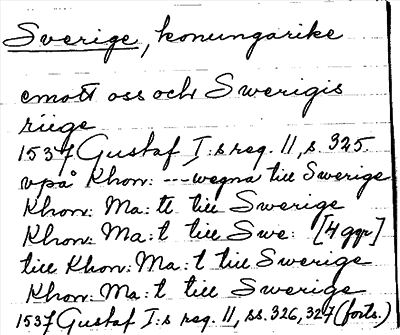 Sverige, konungarike
emott oss och Swerigis
riige
1537 Gustaf I:s reg. 11, s. 325.
vpå Khon: --- wegna till Swerige
Khon: Ma:tt till Swerige
Khon: Ma:t till Swe: [4 ggr]
till Khon: Ma:t till Swerige
Khon: Ma:t till Swerige
1537 Gustaf I:s reg. 11, ss. 326, 327 (forts.)